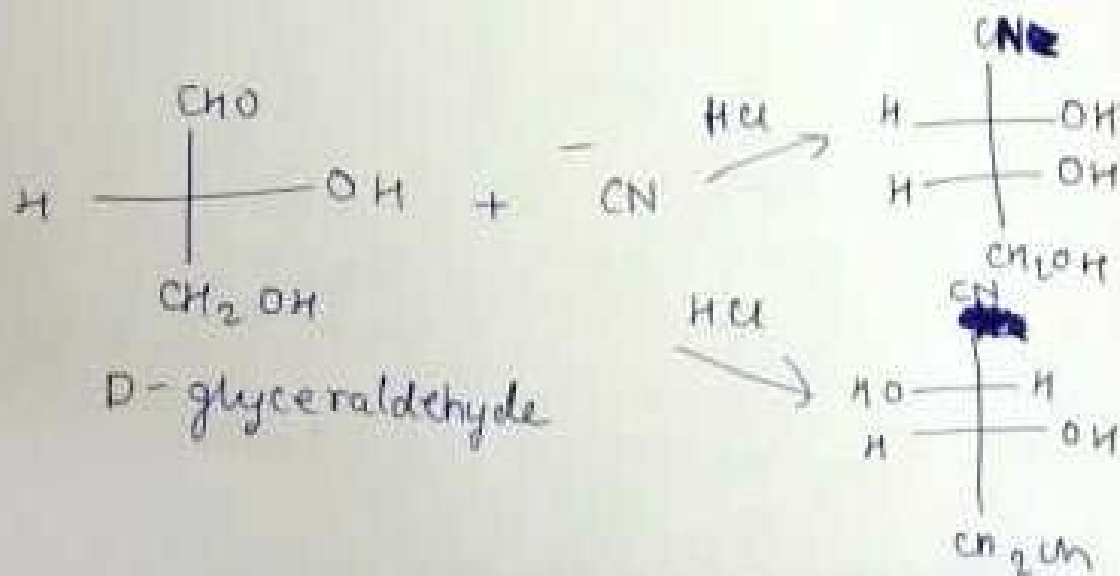 CHO
H OH + - CN
CH2 OH
D-glyceraldehyde
HCl
CN
H OH
H OH
CH2OH
HCl
CN
HO H
H OH